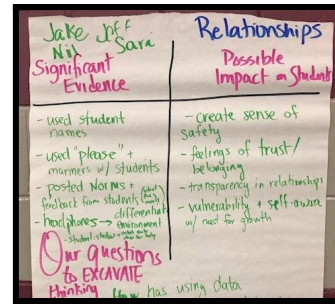 Jake Jeff
Nil Sara
Significant
Evidence
- used student
names
- used "please" +
manners w/ students
- posted Norms +
feedback from students
- headphones → differentiated
environment
- student-student
Relationships
Possible
Impact on Students
- create sense of
safety
- feelings of trust/
belonging
- transparency in relationships
- vulnerability + self-aware
w/ need for growth
Our questions
to EXCAVATE
thinking
How has using data